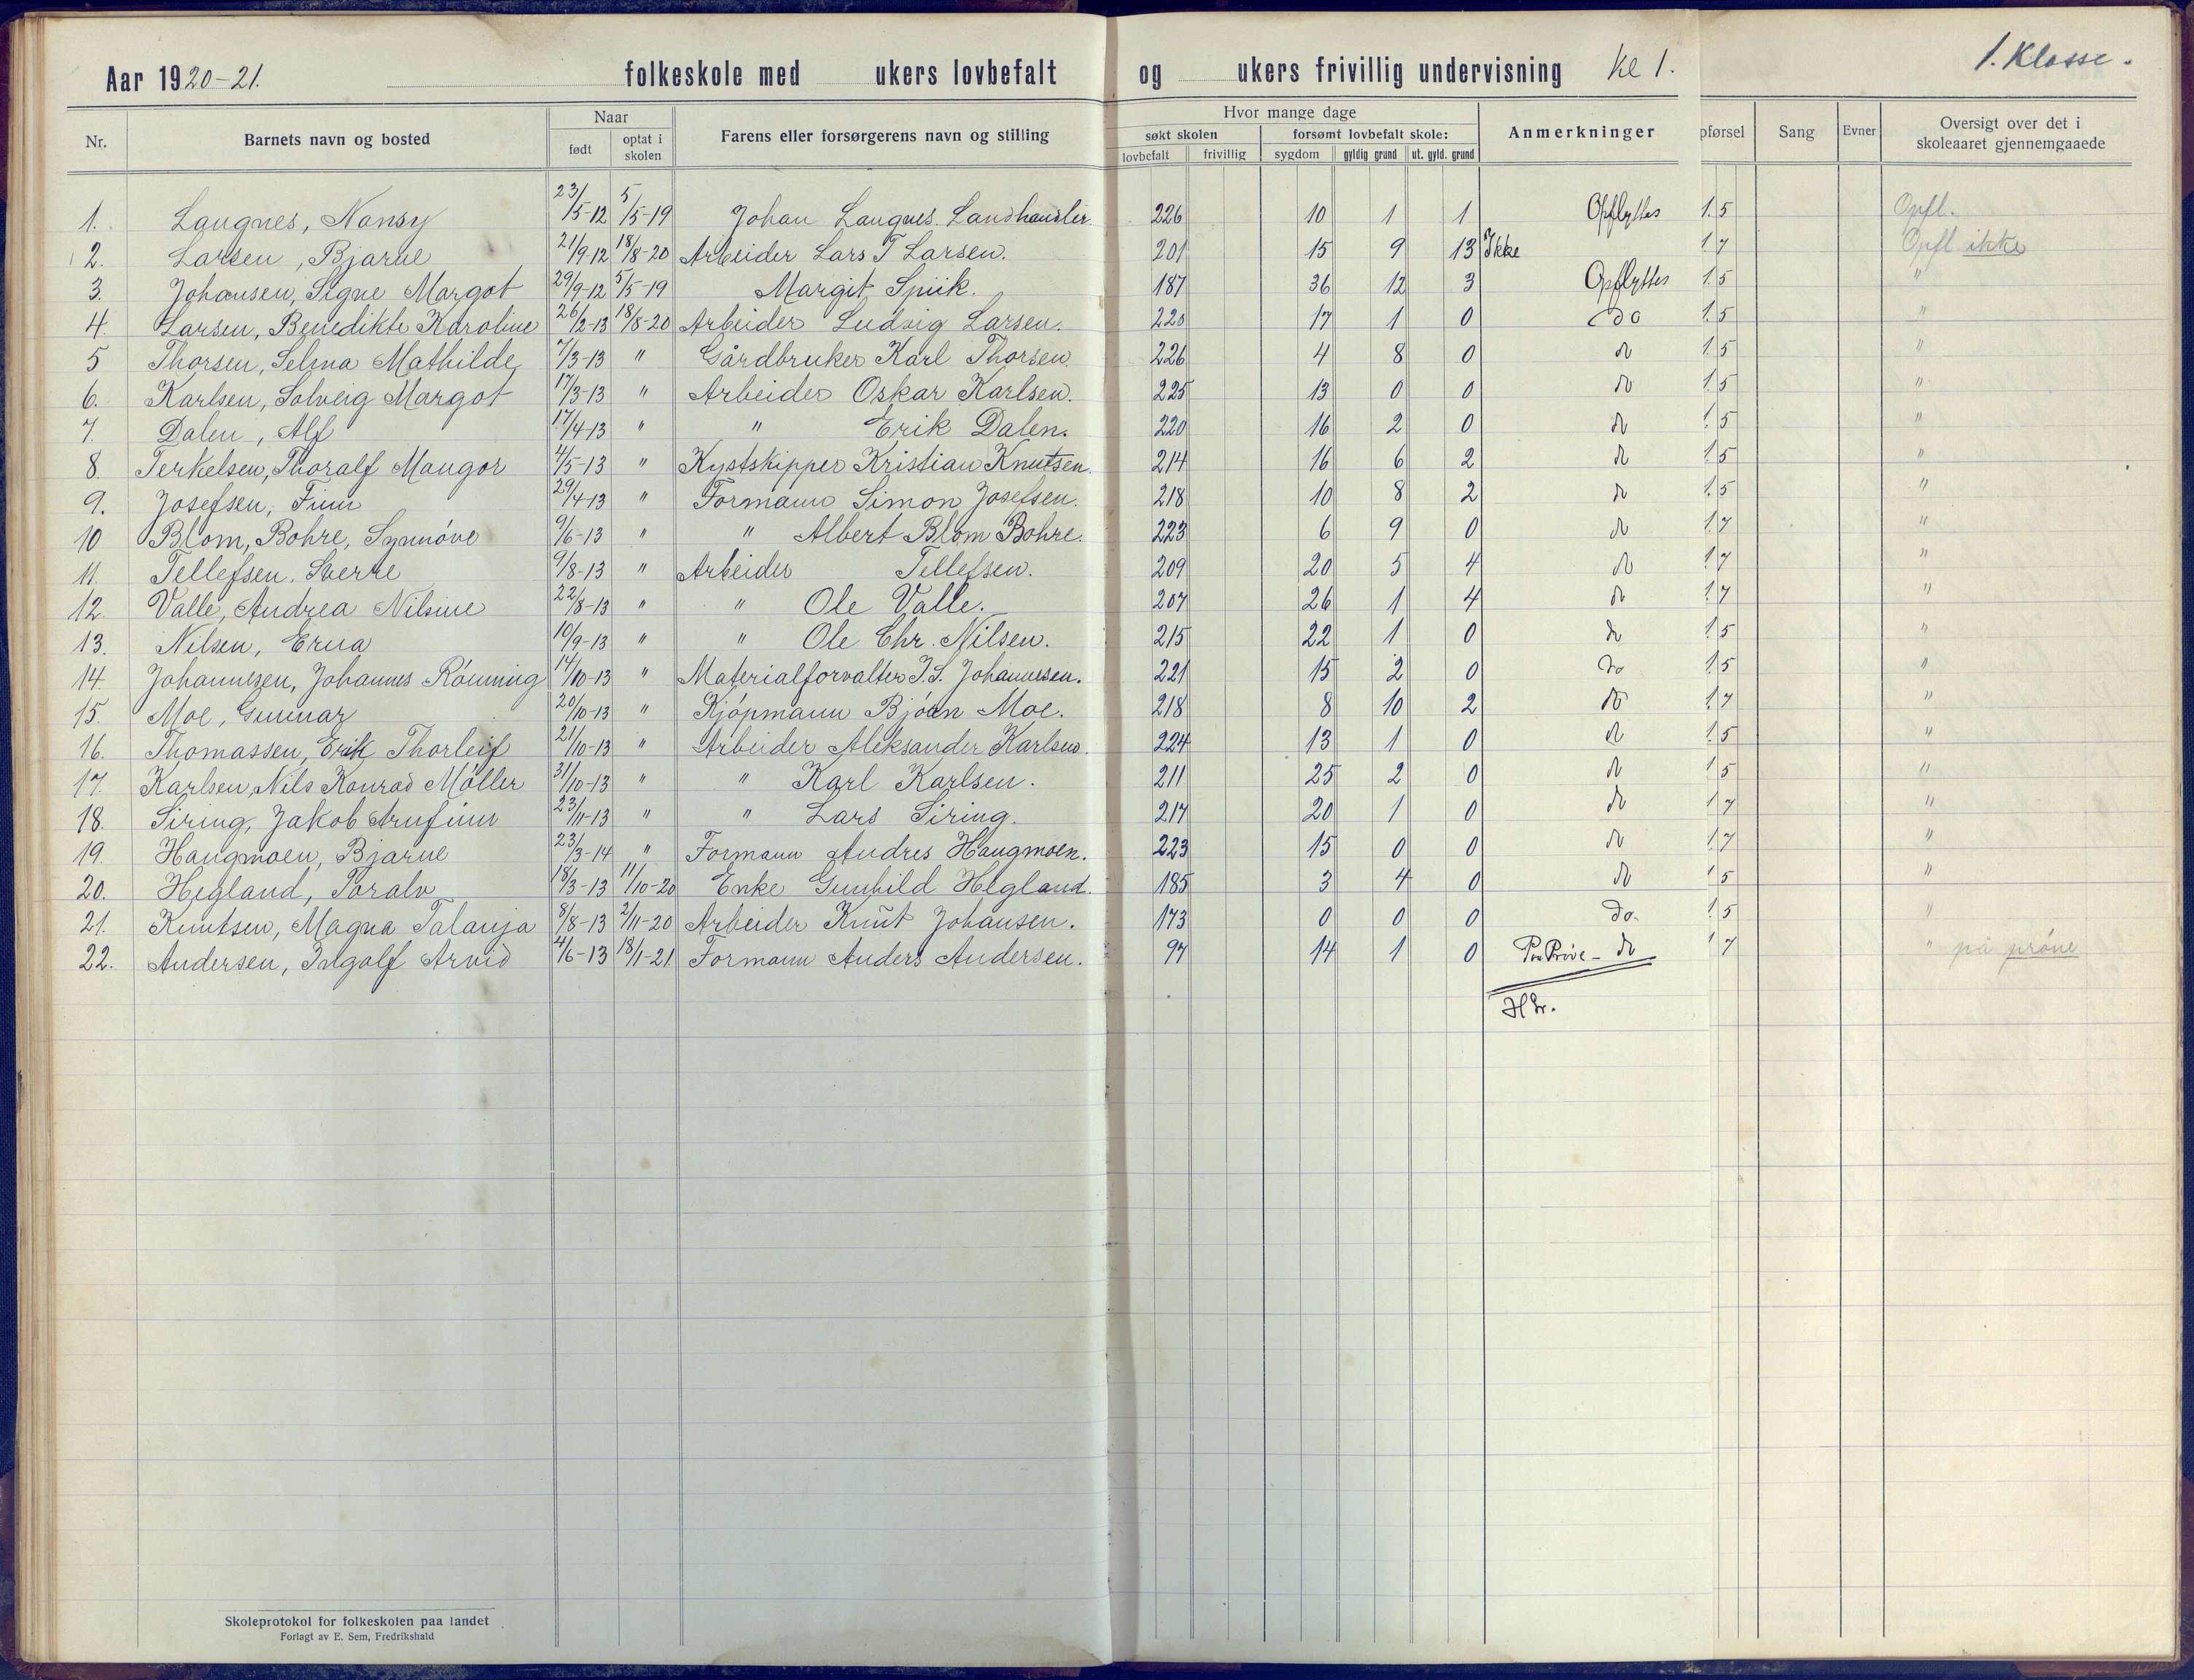 Aar 1920-21. folkeskole med ukers lovbefalt og ukers frivillig undervisning kl 1. 1. Klasse.
Nr. Barnets navn og bosted Naar født optat i skolen Farens eller forsørgerens navn og stilling Hvor mange dage søkt skolen lovbefalt frivillig forsømt lovbefalt skole: sygdom gyldig grund ut. gyld. grund Anmerkninger pførsel Sang Evner Oversigt over det i skoleaaret gjennemgaaede
1. Langnes, Nansy 23/5-12 5/5-19 Johan Langnes Landhandler 226 10 1 1 Opflyttes 1.5 Opfl.
2. Larsen, Bjarne 21/9-12 18/8-20 Arbeider Lars T Larsen. 201 15 9 13 Ikke 1.7 Opfl ikke
3. Johansen, Signe Margot 29/9-12 5/5-19 Margit Spiik. 187 36 12 3 Opflyttes 1.5 "
4. Larsen, Benedikte Karoline 26/2-13 18/8-20 Arbeider Ludvig Larsen. 220 17 1 0 do 1.5 "
5 Thorsen, Selma Mathilde 7/3-13 " Gårdbruker Karl Thorsen. 226 4 8 0 do 1.5 "
6. Karlsen, Solveig Margot 17/3-13 " Arbeider Oskar Karlsen. 225 13 0 0 do 1.5 "
7. Dalen, Alf 17/4-13 " " Erik Dalen. 220 16 2 0 do 1.5 "
8. Terkelsen, Thoralf Mangor 4/5-13 " Kystskipper Kristian Knutsen. 214 16 6 2 do 1.5 "
9. Josefsen, Finn 29/4-13 " Formann Simon Josefsen. 218 10 8 2 do 1.5 "
10 Blom, Bohre, Synnöve 9/6-13 " " Albert Blom Bohre. 223 6 9 0 do 1.7 "
11. Tellefsen, Sverre 9/8-13 " Arbeider Tellefsen. 209 20 5 4 do 1.7 "
12. Valle, Andrea Nilsine 22/8-13 " " Ole Valle. 207 26 1 4 do 1.7 "
13. Nilsen, Erna 10/9-13 " " Ole Chr. Nilsen. 215 22 1 0 do 1.5 "
14. Johannesen, Johannes Rönning 14/10-13 " Materialforvalter J.S. Johannesen. 221 15 2 0 do 1.5 "
15. Moe, Gunnar 20/10-13 " Kjöpmann Bjöen Moe. 218 8 10 2 do 1.7 "
16. Thomassen, Erik Thorleif 21/10-13 " Arbeider Aleksander Karlsen. 224 13 1 0 do 1.5 "
17. Karlsen, Nils Konrad Möller 31/10-13 " " Karl Karlsen. 211 25 2 0 do 1 5 "
18. Siring, Jakob Arnfinn 23/11-13 " " Lars Siring. 217 20 1 0 do 1 7 "
19. Haugmoen, Bjarne 23/3-14 " Formann Andres Haugmoen. 223 15 0 0 do 1.7 "
20. Hegland, Toralv 18/3-13 11/10-20 Enke Gunhild Hegland. 185 3 4 0 do 1 5 "
21. Knutsen, Magna Talanja 8/8-13 2/11-20 Arbeider Knut Johansen. 173 0 0 0 do. 1.5 "
22. Andersen, Ingolf Arvid 4/6-13 18/1-21 Formann Anders Andersen. 97 14 1 0 Paa Pröve - do 1 7 " på pröve
Skoleprotokol for folkeskolen paa landet
Forlagt av E. Sem, Fredrikshald